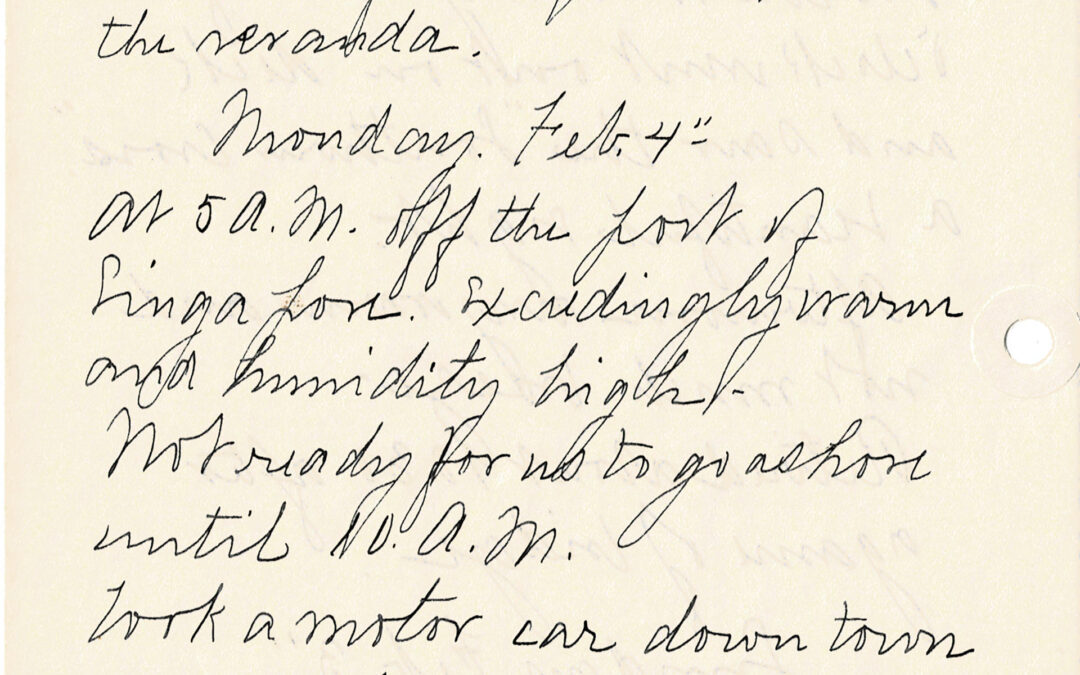 the veranda.
Monday. Feb. 4"
at 5 A.M. off the port of
Singapore. Exceedingly warm
and humidity high -
Not ready for us to go ashore
until 10. A.M.
took a motor car down town